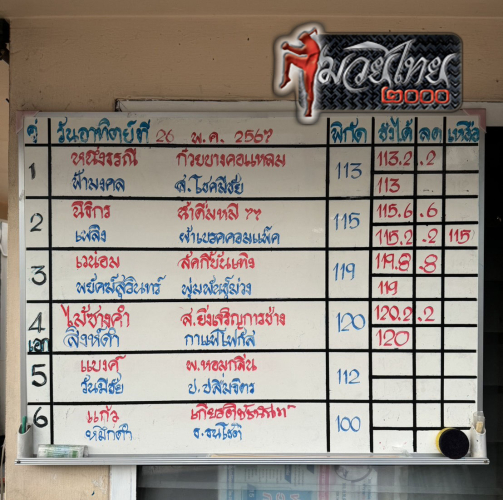 มวยไทย
๒๐๐๐
คู่ วันอาทิตย์ที่ 26 พ.ค. 2567 พิกัด ชั่งได้ ลด เหลือ
1 หนึ่งธรณี ก้วยบางคอแหลม 113 113.2 .2
ฟ้ามงคล ส.โชคมีชัย 113
2 นิธิกร 115 115.6 .6
เพลิง ผ้าเบรคคอมแพ็ค 115.2 .2 115
3 เวนอม สักกี่บันเทิง 119 119.8 .8
พยัคฆ์สุรินทร์ พุ่มพันธุ์ม่วง 119
4 ไม้ซางคำ ส.ยิ่งเจริญการช่าง 120 120.2 .2
เอก สิงห์ดำ กาแฟโฟกัส 120
5 แบงค์ พ.หอมกลิ่น 112
วันมีชัย ป.ปสิ่มจิตร
6 แก้ว 100
หมึกดำ อ.ธนโชติ